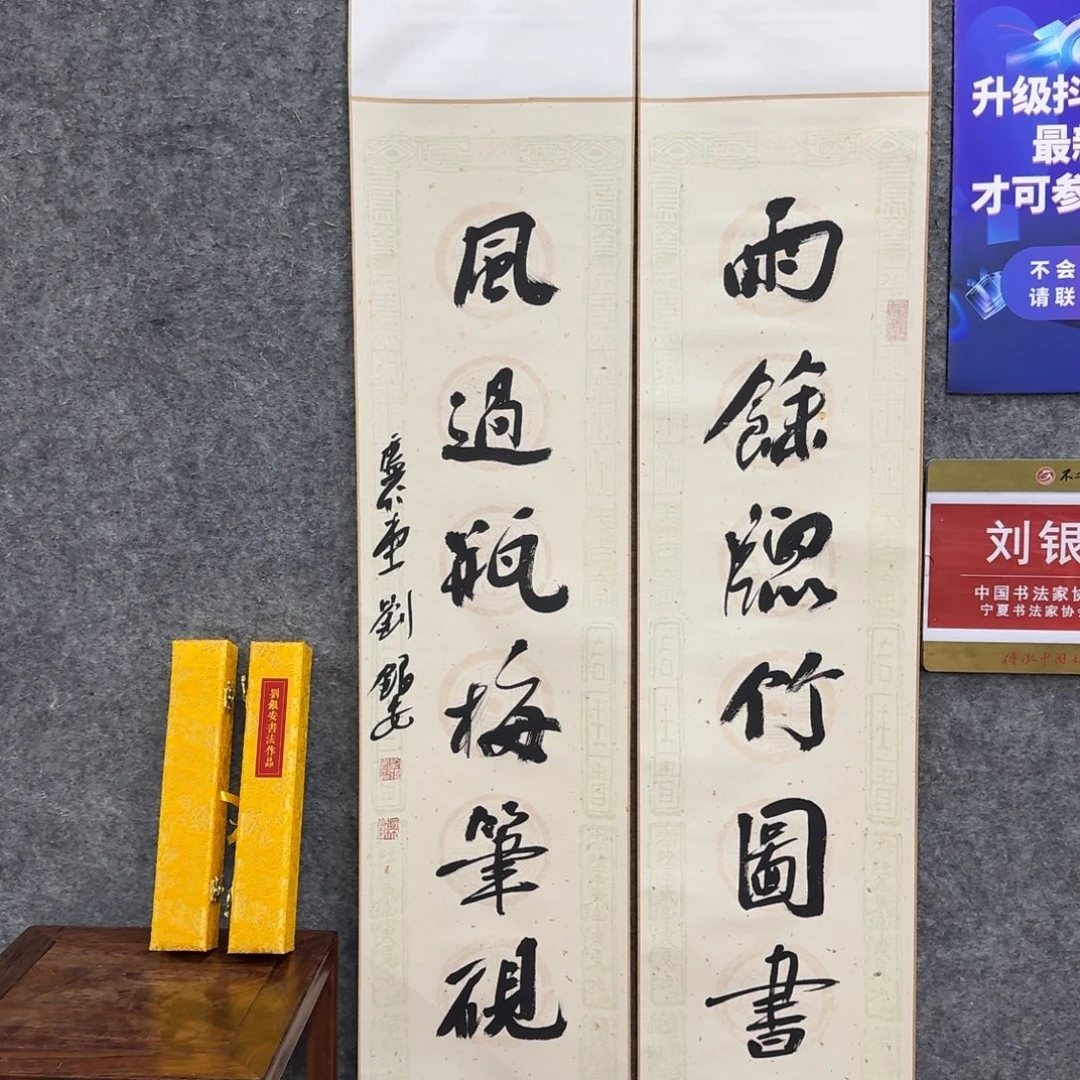 雨餘牕竹圖書
風過瓶梅筆硯
劉銀安
劉銀安書法作品
升级抖
最新
才可参
不会
请联
不二
刘银
中国书法家协
宁夏书法家协会